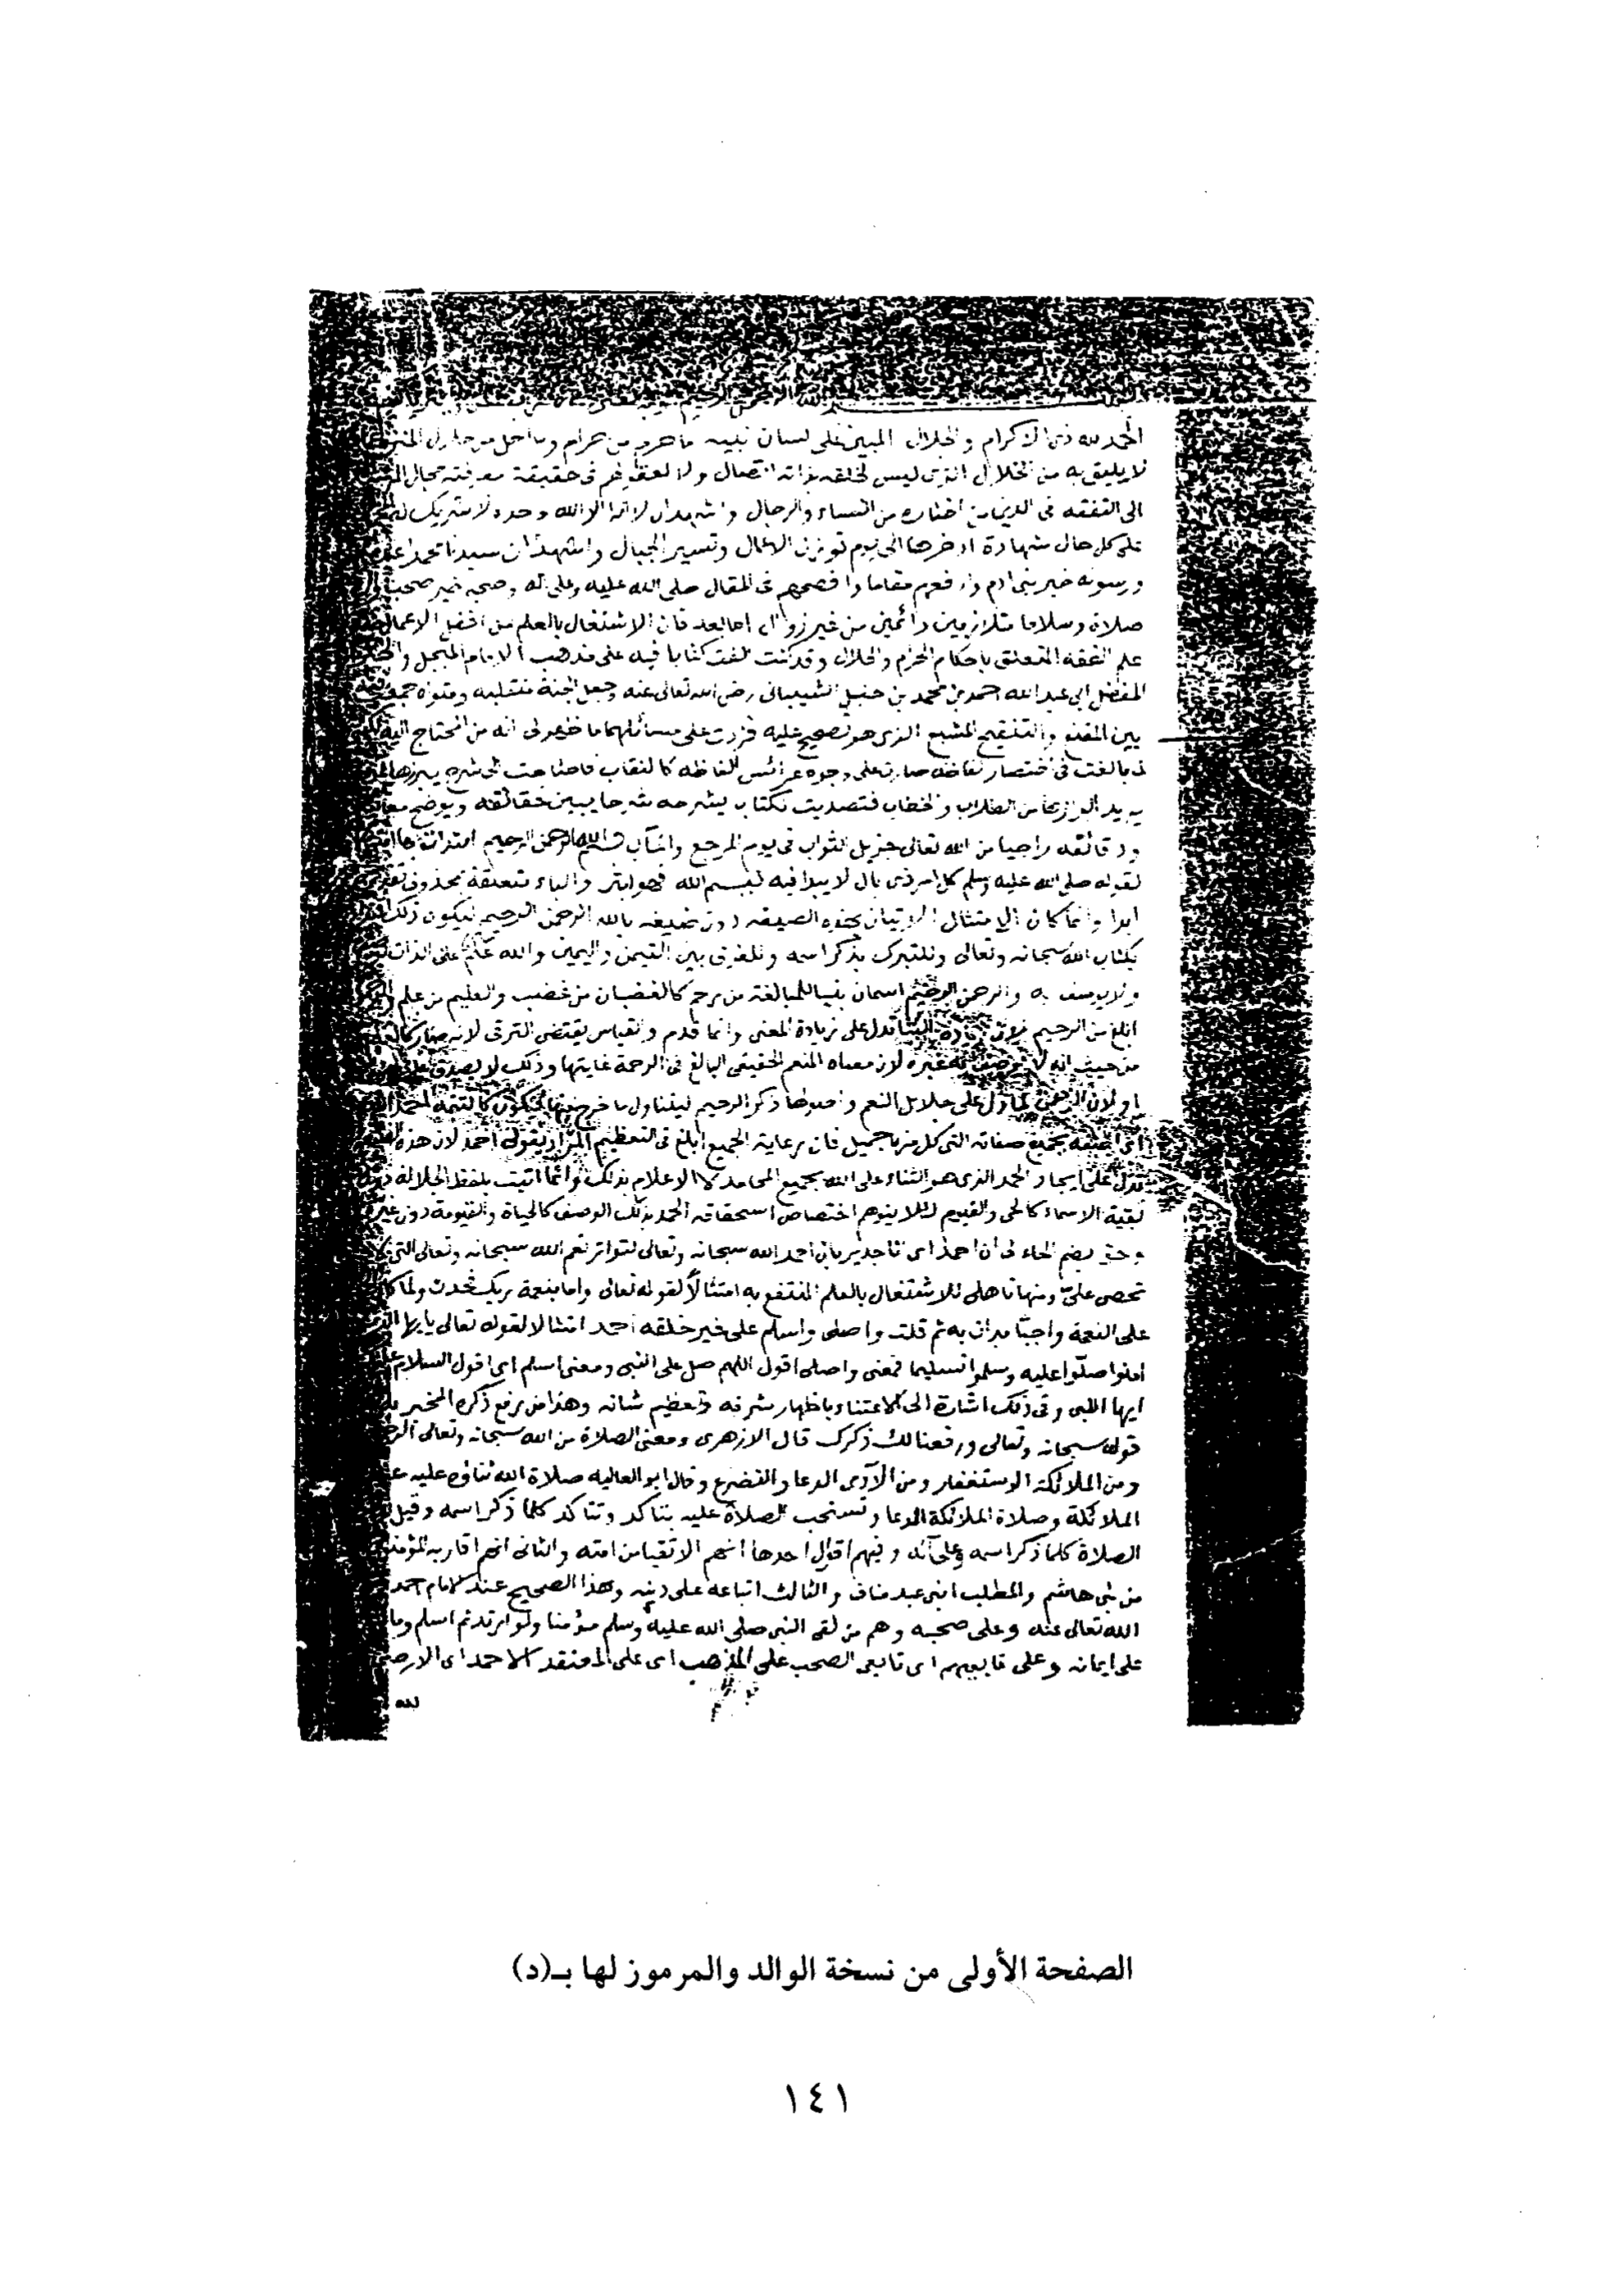 الحمد لله ذى الاكرام والجلال المبين على لسان نبيه ما حرم من حرام وما احل من حلال
لا يليق به من الخلال الذى ليس لخلقه بذاته اتصال ولا لعقولهم فى حقيقة معرفته مجال
الى التفقه فى الدين من اختاره من النساء والرجال واشهد ان لا اله الا الله وحده لا شريك له
على كل حال شهادة ادخرها الى يوم توزن الاعمال وتسير الجبال واشهد ان سيدنا محمدا
ورسوله خير بنى ادم وارفعهم مقاما وافصحهم فى المقال صلى الله عليه وعلى آله وصحبه خير صحب
صلاة وسلاما متلازمين دائمين من غير زوال اما بعد فان الاشتغال بالعلم من افضل الاعمال
علم الفقه المتعلق باحكام الحرام والحلال وقد كنت الفت كتابا فيه على مذهب الامام المبجل
المفضل ابى عبد الله احمد بن محمد بن حنبل الشيبانى رضى الله تعالى عنه وجعل الجنة منقلبه ومثواه
بين المقنع والتنقيح المشبع الذى هو تصحيح عليه فزدت على مسائلهما ما ظهر لى انه من المحتاج اليه
لما بالغت فى اختصار الفاظه صارت على وجوه عرائس الفاظه كالنقاب فاحتاجت الى شرح يبرزها
يريد ابرازها من الطلاب والخطاب فتصديت لكتاب يشرحه شرحا يبين حقائقه ويوضح
ودقائقه راجيا من الله تعالى جزيل الثواب فى يوم المرجع والمآب بسم الله الرحمن الرحيم
لقوله صلى الله عليه وسلم كل امر ذى بال لا يبدا فيه ببسم الله فهو ابتر والباء متعلقة بمحذوف
ابدا وانما كان الامتثال الاتيان بهذه الصيغه دون بالله الرحمن الرحيم ليكون ذلك
بكتاب الله سبحانه وتعالى وللتبرك بذكر اسمه وللفرق بين التيمن واليمين والله علم على الذات
ولا يوصف به والرحمن الرحيم اسمان بنيا للمبالغة من رحم كالغضبان من غضب والعليم من علم
ابلغ من الرحيم لان زيادة البنا تدل على زيادة المعنى وانما قدم والقياس يقتضى الترقى لانه صار كالعلم
من حيث انه لا يوصف به غيره لان معناه المنعم الحقيقى البالغ فى الرحمة غايتها وذلك لا يصدق على
او لان الرحمن لما دل على جلائل النعم واصولها ذكر الرحيم ليتناول ما خرج منها فيكون كالتتمه احمد الله
اى اصفه بجميع صفاته التى كل منها جميل فان رعاية الجميع ابلغ فى التعظيم المراد بقولى احمد لان هذه
تدل على ايجاد الحمد الذى هو الثناء على الله بجميع المحامد لا الاعلام بذلك وانما اتيت بلفظ الجلاله دون
بقية الاسماء كالحى والقيوم لئلا يتوهم اختصاص استحقاقه الحمد بذلك الوصف كالحياة والقيومة دون غيره
وحق بضم الحاء لى ان احمد اى انا جدير بان احمد الله سبحانه وتعالى لتواتر نعم الله سبحانه وتعالى التى
تحصى على ومنها تاهلى للاشتغال بالعلم المنتفع به امتثالا لقوله تعالى واما بنعمة ربك فحدث ولما
على النعمة واجبا بدات به ثم قلت واصلى واسلم على خير خلقه احمد امتثالا لقوله تعالى يايها
امنوا صلوا عليه وسلموا تسليما فمعنى واصلى اقول اللهم صل على النبى ومعنى اسلم اى اقول السلام
ايها النبى وفى ذلك اشارة الى الاعتناء باظهار شرفه وتعظيم شانه وهذا من رفع ذكره المخبر
قوله سبحانه وتعالى ورفعنا لك ذكرك قال الازهرى ومعنى الصلاة من الله سبحانه وتعالى
ومن الملائكة الاستغفار ومن الآدمى الدعا والتضرع وقال ابو العاليه صلاة الله ثناؤه عليه
الملائكة وصلاة الملائكة الدعا وتستحب الصلاة عليه بتاكد وتتاكد كلما ذكر اسمه وقيل
الصلاة كلما ذكر اسمه وعلى آله وفيهم اقوال احدها انهم الاتقيا من امته والثانى انهم اقاربه
من بنى هاشم والمطلب ابنى عبد مناف والثالث اتباعه على دينه وهذا الصحيح عند الامام احمد
الله تعالى عنه وعلى صحبه وهم من لقى النبى صلى الله عليه وسلم مؤمنا ولو ارتد ثم اسلم
على ايمانه وعلى تابعيهم اى تابعى الصحب على المذهب اى على المعتقد الاحمد اى
لله
الصفحة الأولى من نسخة الوالد والمرموز لها بـ(د)
١٤١